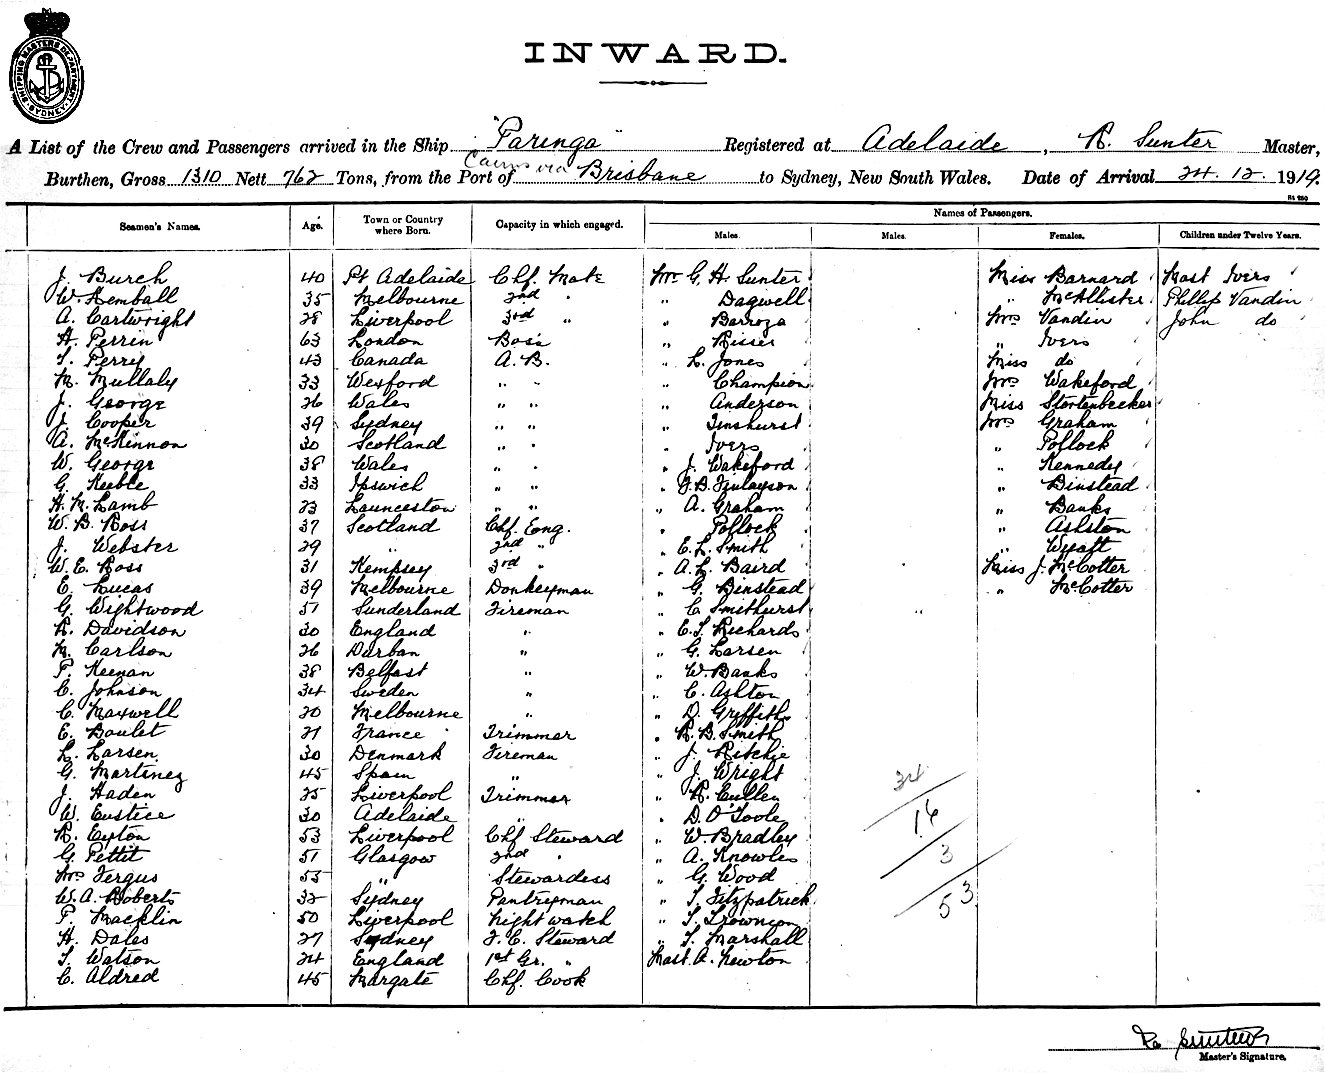 SHIPPING MASTERS DEPARTMENT SYDNEY
INWARD.
A List of the Crew and Passengers arrived in the Ship "Paringa" Registered at Adelaide, R. Sunter Master,
Burthen, Gross 1310 Nett 762 Tons, from the Port of Cairns via Brisbane to Sydney, New South Wales. Date of Arrival 24. 12. 1919.
Names of Passengers.
Seamen's Names. Age. Town or Country where Born. Capacity in which engaged. Males. Males. Females. Children under Twelve Years.
J. Burch 40 Pt Adelaide Chf. Mate Mr G. H. Sunter Miss Barnard Mast Ivers
W. Kemball 35 Melbourne 2nd " " Dagwell " McAllister Phillip Vandin
A. Cartwright 28 Liverpool 3rd " " Barroza Mrs Vandin John do
H. Perrin 63 London Bosn " Risser " Ivers
T. Perry 43 Canada A.B. " L. Jones Miss do
M. Mullaly 33 Wexford " " " Champion Mrs Wakeford
J. George 26 Wales " " " Anderson Miss Stortenbecker
J. Cooper 39 Sydney " " " Smshurst Mrs Graham
A. McKinnon 30 Scotland " " " Ivers " Pollock
W. George 38 Wales " " " J. Wakeford " Kennedy
G. Keeble 33 Ipswich " " " F. B. Finlayson " Binstead
H. M. Lamb 23 Launceston " " " A. Graham " Banks
W. B. Ross 37 Scotland Chf. Eng. " Pollock " Ashton
J. Webster 29 " 2nd " " E. L. Smith " Wyatt
W. E. Ross 31 Kempsey 3rd " " A. L. Baird Miss J. McCotter
E. Lucas 39 Melbourne Donkeyman " G. Binstead " McCotter
G. Wightwood 51 Sunderland Fireman " C. Smithurst
R. Davidson 30 England " " E. T. Richards
M. Carlson 26 Durban " " G. Larsen
P. Keenan 38 Belfast " " W. Banks
C. Johnson 34 Sweden " " C. Ashton
C. Maxwell 20 Melbourne " " D. Griffith
E. Boulet 21 France Trimmer " R. B. Smith
L. Larsen 30 Denmark Fireman " J. Ritchie
G. Martinez 45 Spain " " J. Wright
J. Haden 25 Liverpool Trimmer " R. Cullen
W. Eustice 30 Adelaide " " D. O'Toole
R. Eyton 53 Liverpool Chf Steward " W. Bradley
G. Pettit 51 Glasgow 2nd " " A. Knowles
Mrs Fergus 55 " Stewardess " G. Wood
W. A. Roberts 32 Sydney Pantryman " T. Fitzpatrick
P. Macklin 50 Liverpool Nightwatch " T. Trownson
H. Dales 27 Sydney F. C. Steward " T. Marshall
T. Watson 24 England 1st Gr. " Mast. A. Newton
C. Aldred 45 Margate Chf. Cook
34
16
3
53
R. Sunter
Master's Signature.